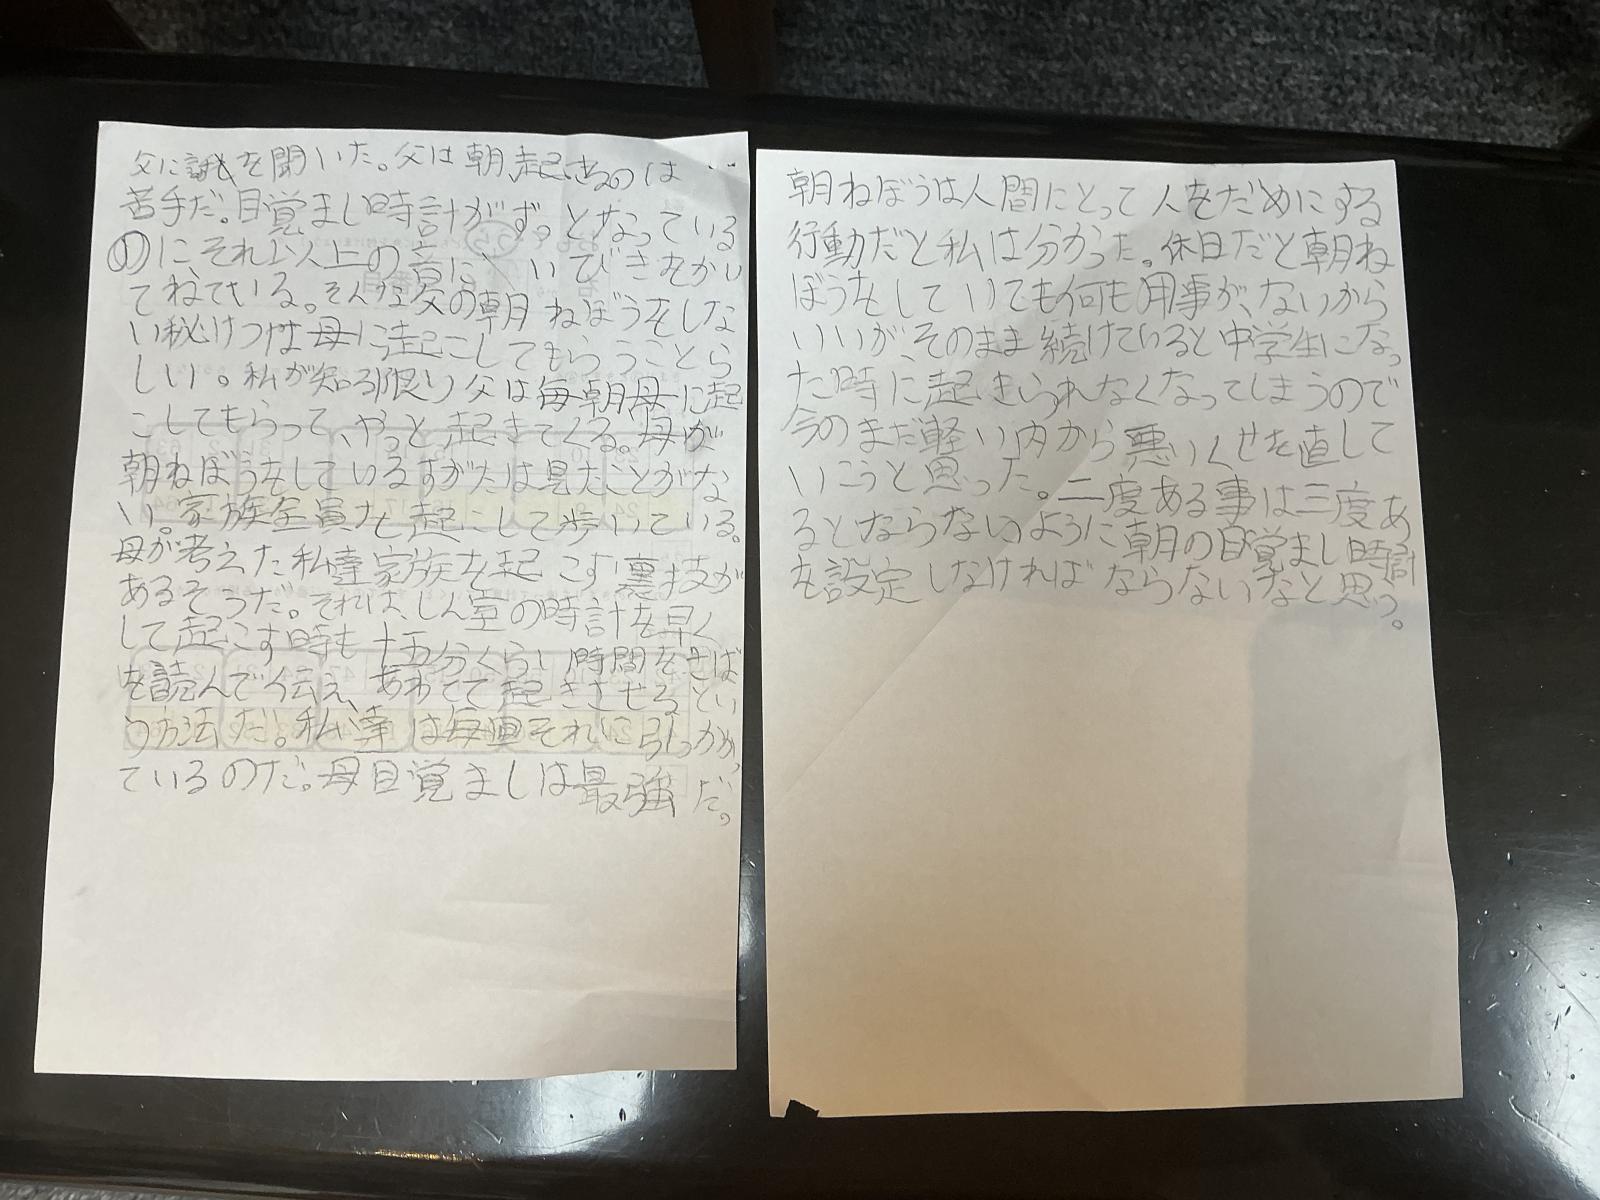 父に話を聞いた。父は朝起きるのは
苦手だ。目覚まし時計がずっとなっている
のにそれ以上の音に、いびきをかい
てねている。そんな父の朝ねぼうをしな
い秘けつは母に起こしてもらうことら
しい。私が知る限り父は毎朝母に起
こしてもらって、やっと起きてくる。母が
朝ねぼうをしているすがたは見たことがな
い。家族全員を起こして歩いている。
母が考えた私達家族を起こす裏技が
あるそうだ。それは、しん室の時計を早く
して起こす時も十五分くらい時間をさば
を読んで伝え、あわてて起きさせるとい
う方法だ。私達は毎回それに引っかかっ
ているのだ。母目覚ましは最強だ。
朝ねぼうは人間にとって人をだめにする
行動だと私は分かった。休日だと朝ね
ぼうをしていても何も用事が、ないから
いいが、そのまま続けていると中学生になっ
た時に起きられなくなってしまうので
今のまだ軽い内から悪いくせを直して
いこうと思った。二度ある事は三度あ
るとならないように朝の目覚まし時計
を設定しなければならないなと思う。